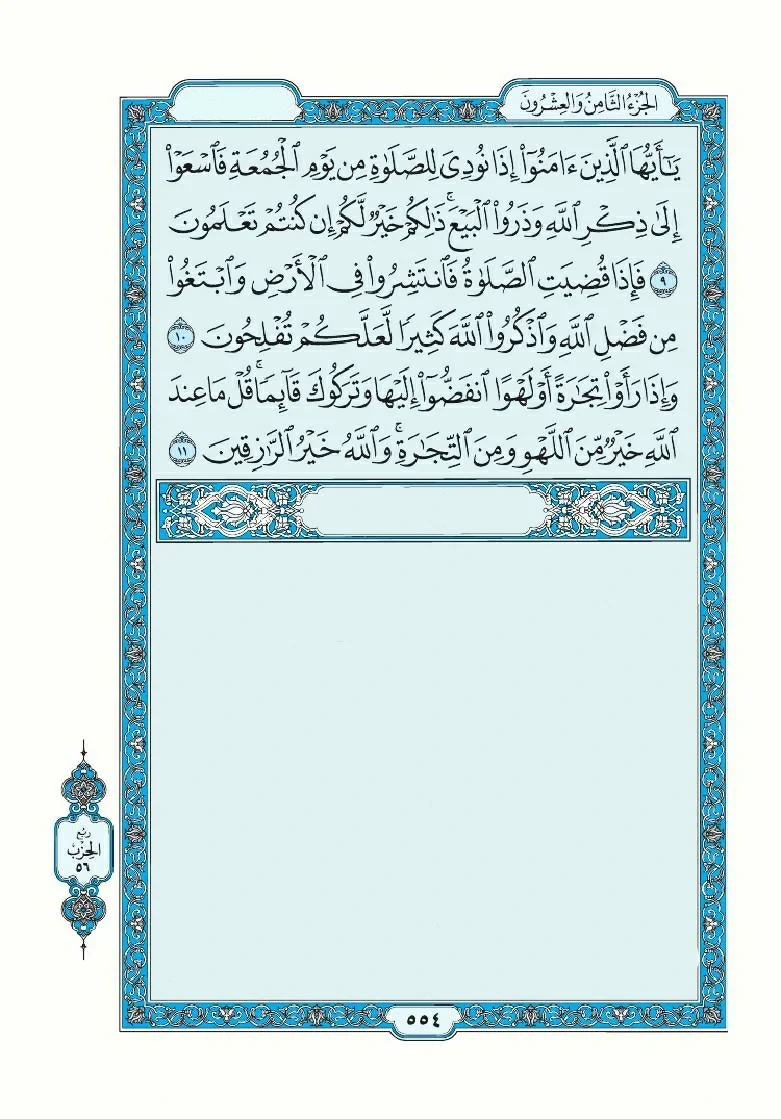 الجُزْءُ الثَّامِنُ وَالعِشْرُونَ
يَٰٓأَيُّهَا ٱلَّذِينَ ءَامَنُوٓا۟ إِذَا نُودِىَ لِلصَّلَوٰةِ مِن يَوْمِ ٱلْجُمُعَةِ فَٱسْعَوْا۟
إِلَىٰ ذِكْرِ ٱللَّهِ وَذَرُوا۟ ٱلْبَيْعَ ۚ ذَٰلِكُمْ خَيْرٌ لَّكُمْ إِن كُنتُمْ تَعْلَمُونَ
٩ فَإِذَا قُضِيَتِ ٱلصَّلَوٰةُ فَٱنتَشِرُوا۟ فِى ٱلْأَرْضِ وَٱبْتَغُوا۟
مِن فَضْلِ ٱللَّهِ وَٱذْكُرُوا۟ ٱللَّهَ كَثِيرًا لَّعَلَّكُمْ تُفْلِحُونَ ١٠
وَإِذَا رَأَوْا۟ تِجَٰرَةً أَوْ لَهْوًا ٱنفَضُّوٓا۟ إِلَيْهَا وَتَرَكُوكَ قَآئِمًا ۚ قُلْ مَا عِندَ
ٱللَّهِ خَيْرٌ مِّنَ ٱللَّهْوِ وَمِنَ ٱلتِّجَٰرَةِ ۚ وَٱللَّهُ خَيْرُ ٱلرَّٰزِقِينَ ١١
رُبْع
الحِزْب
٥٦
٥٥٤